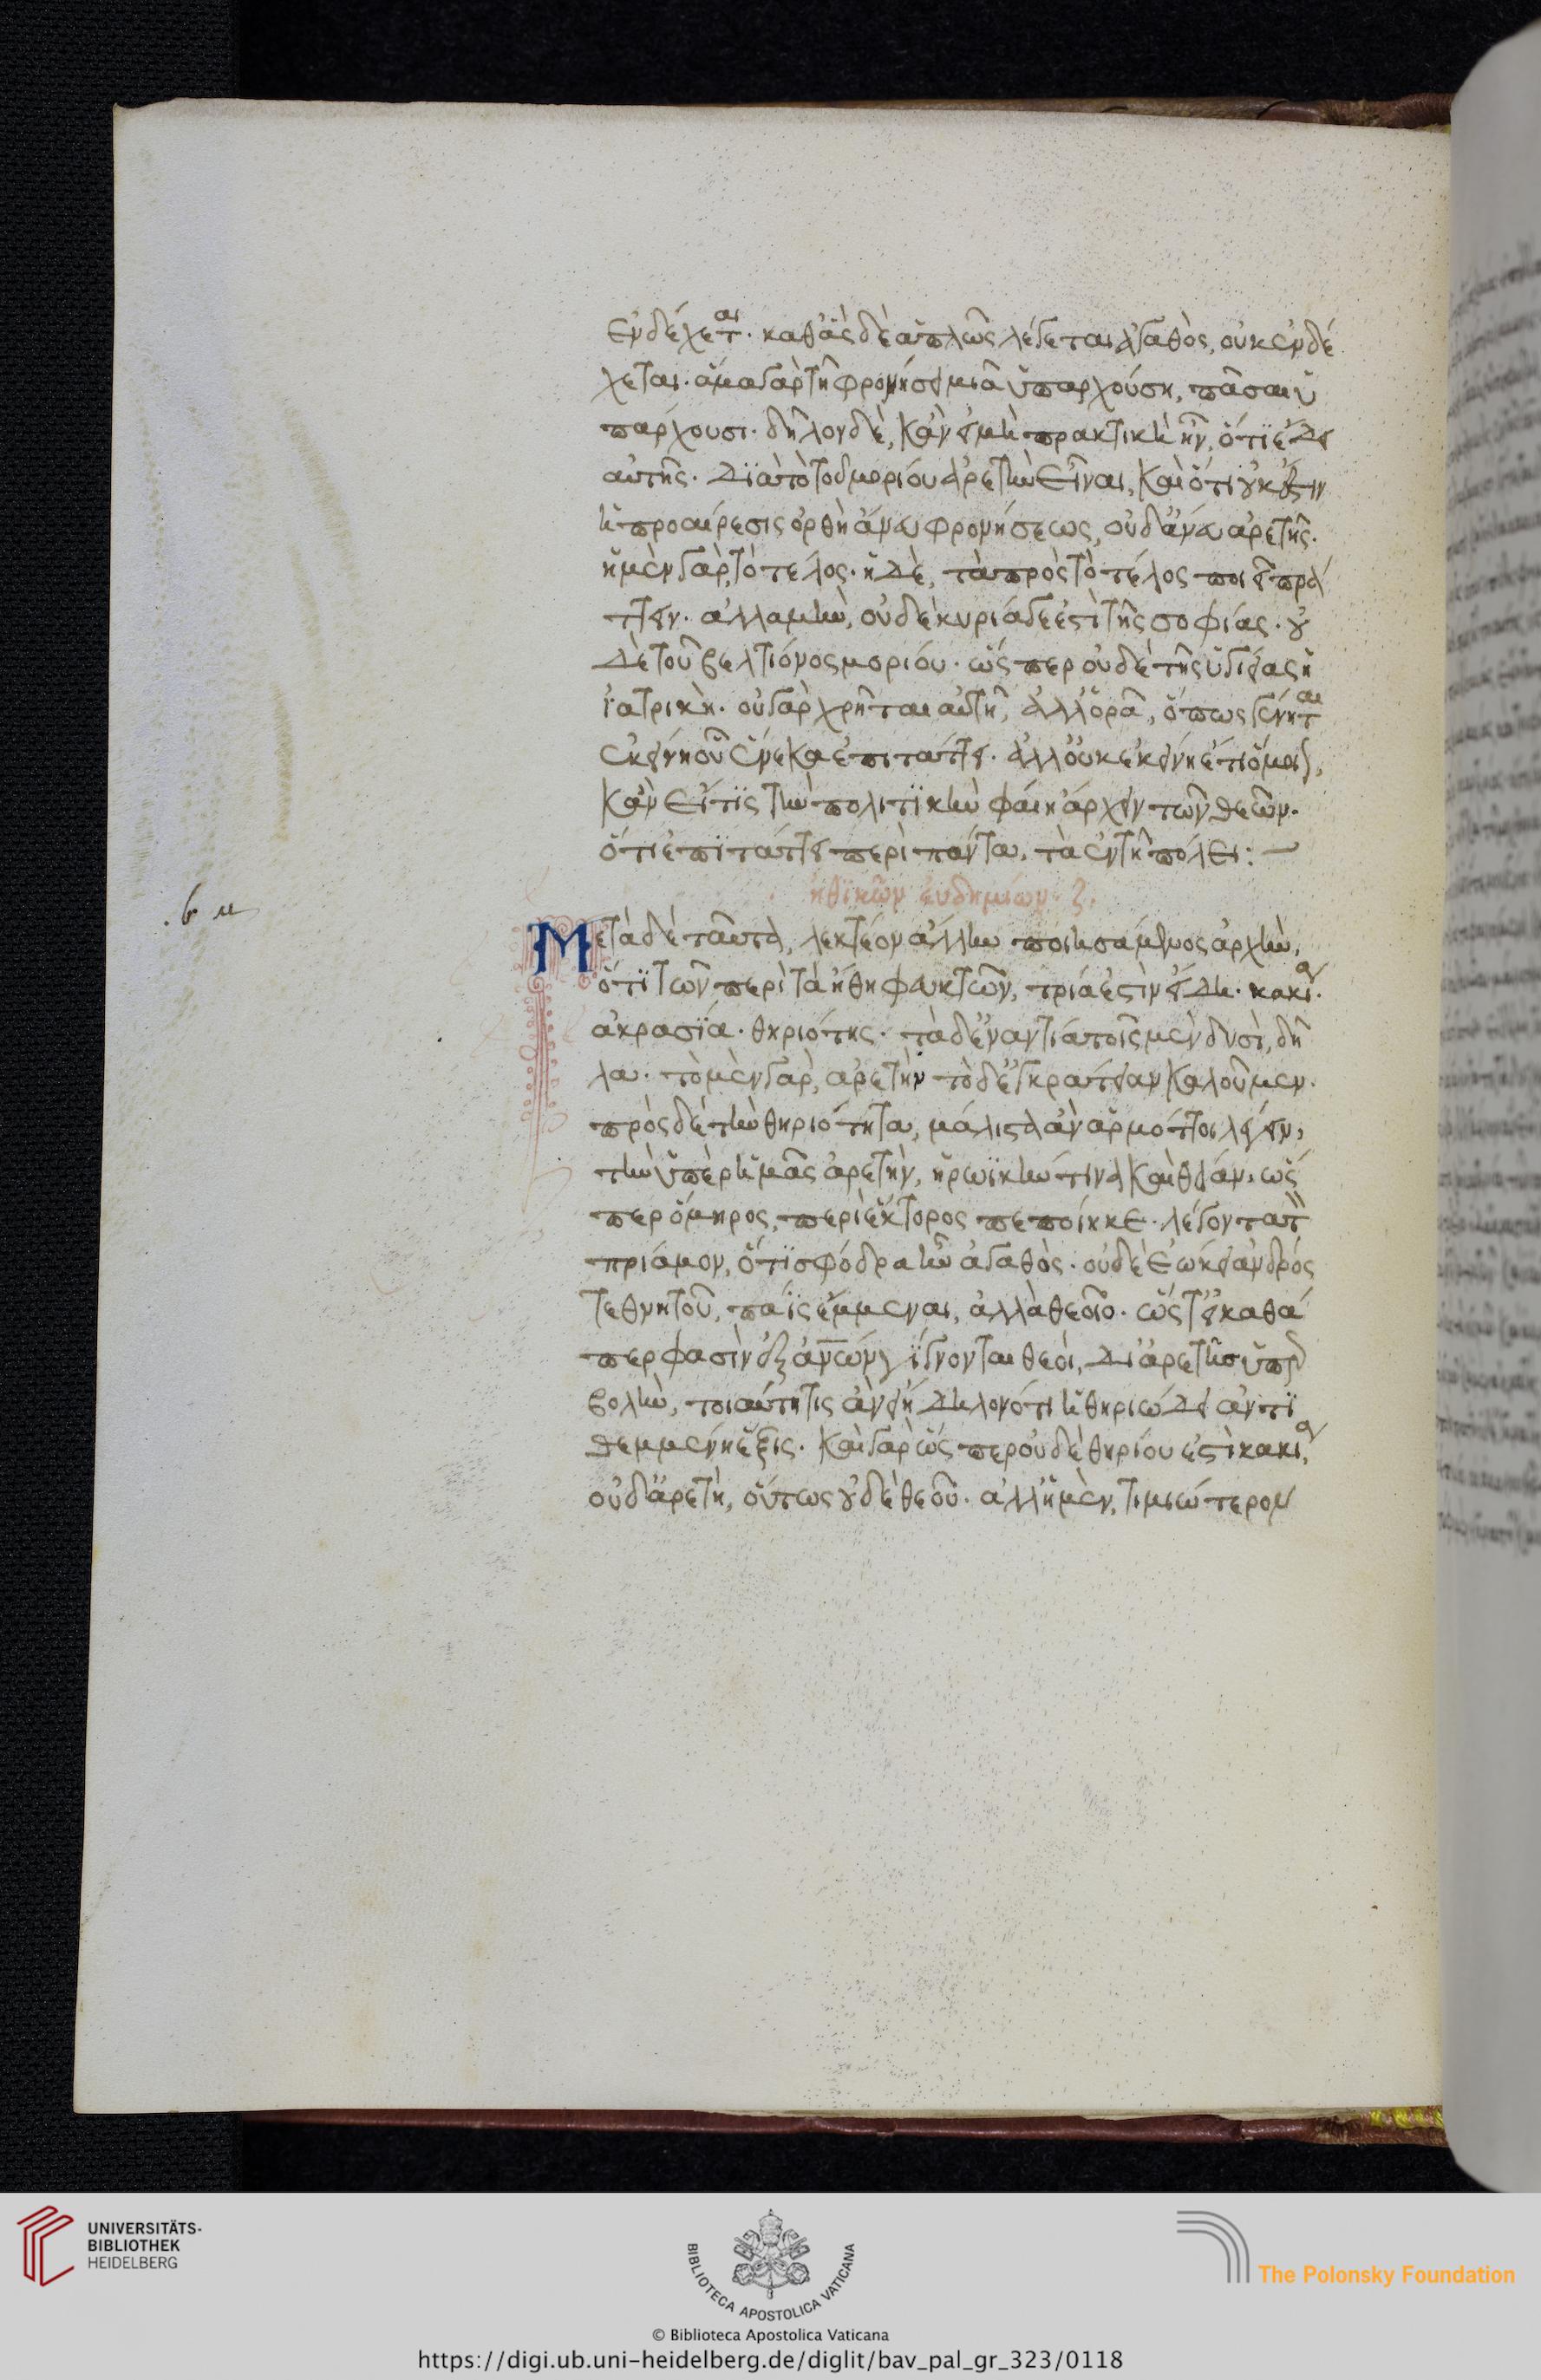 ἐνδέχεται· καθ' ἃς δὲ ἁπλῶς λέγεται ἀγαθὸς, οὐκ ἐνδέ
χεται· ἅμα γὰρ τῆ φρονήσει μιᾶ ὑπαρχούση, πᾶσαι ὑ
πάρχουσι· δῆλον δὲ, κἂν εἰ μὴ πρακτικὴ ἦν, ὅτι ἔδει
αὐτῆς· διὰ τὸ τοῦ μορίου ἀρετὴν εἶναι, καὶ ὅτι οὐκ ἔστιν
ἡ προαίρεσις ὀρθὴ ἄνευ φρονήσεως, οὐδ' ἄνευ ἀρετῆς·
ἡ μὲν γὰρ, τὸ τέλος· ἡ δὲ, τὰ πρὸς τὸ τέλος ποιεῖ πρά
ττειν· ἀλλὰ μὴν, οὐδὲ κυρία δέ ἐστι τῆς σοφίας· οὐ
δὲ τοῦ βελτίονος μορίου· ὥσπερ οὐδὲ τῆς ὑγιείας ἡ
ἰατρική· οὐ γὰρ χρῆται αὐτῆ, ἀλλ' ὁρᾶ, ὅπως γένηται
ἐκείνη οὖν ἕνεκα ἐπιτάττει· ἀλλ' οὐκ ἐκείνη ἔτι ὅμοιον,
κἂν εἴ τις τὴν πολιτικὴν φαίη ἄρχειν τῶν θεῶν·
ὅτι ἐπιτάττει περὶ πάντα, τὰ ἐν τῆ πόλει: —
ἠθικῶν εὐδημίων· ζ·
Μετὰ δὲ ταῦτα, λεκτέον ἄλλην ποιησάμενος ἀρχὴν,
ὅτι τῶν περὶ τὰ ἤθη φευκτῶν, τρία ἐστὶν εἴδη· κακία·
ἀκρασία· θηριότης· τὰ δ' ἐναντία τοῖς μὲν δυσὶ, δῆ
λα· τὸ μὲν γὰρ, ἀρετὴν τὸ δ' ἐγκράτειαν καλοῦμεν·
πρὸς δὲ τὴν θηριότητα, μάλιστα ἂν ἁρμόττοι λέγειν,
τὴν ὑπὲρ ἡμᾶς ἀρετὴν, ἡρωϊκήν τινα καὶ θείαν, ὥσ
περ ὅμηρος, περὶ ἕκτορος πεποίηκε· λέγοντα τὸν
πρίαμον, ὅτι σφόδρα ἦν ἀγαθὸς· οὐδὲ ἐώκει ἀνδρός
τε θνητοῦ, πάϊς ἔμμεναι, ἀλλὰ θεοῖο· ὥστ' εἰ καθά
περ φασὶν ἐξ ἀνων γίγνονται θεοὶ, δι' ἀρετῆς ὑπερ
βολὴν, τοιαύτη τις ἂν εἴη δηλονότι ἡ θηριώδει ἀντι
θεμμένη ἕξις· καὶ γὰρ ὥσπερ οὐδὲ θηρίου ἐστὶ κακία,
οὐδ' ἀρετὴ, οὕτως οὐδὲ θεοῦ· ἀλλ' ἡ μὲν, τιμιώτερον
UNIVERSITÄTS-
BIBLIOTHEK
HEIDELBERG
BIBLIOTECA APOSTOLICA VATICANA
The Polonsky Foundation
© Biblioteca Apostolica Vaticana
https://digi.ub.uni-heidelberg.de/diglit/bav_pal_gr_323/0118